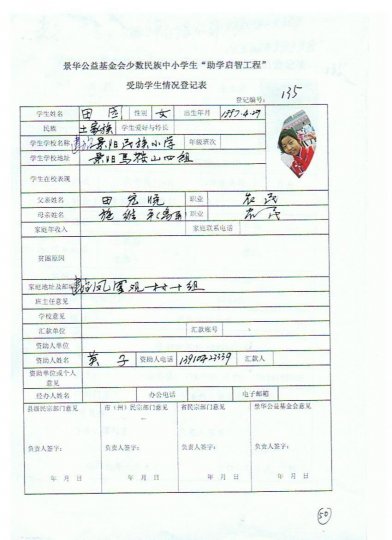 景华公益基金会少数民族中小学生“助学启智工程”
受助学生情况登记表
登记编号: 135
学生姓名 田 性别 女 出生年月 1997.4.29
民族 土家族 学生爱好与特长
学生学校名称 景阳民族小学 年级班次
学生学校地址 景阳马鞍山四组
学生在校表现
父亲姓名 田宏 职业 农民
母亲姓名 职业 农民
家庭年收入 家庭联系电话
贫困原因
家庭地址及邮编 凤凰观一村十组
班主任意见
学校意见
汇款单位 汇款账号
资助人单位
资助人姓名 英子 资助人电话 13910423339 汇款人
资助单位或个人意见
经办人姓名 办公电话 电子邮箱
县级民宗部门意见 市（州）民宗部门意见 省民宗部门意见 景华公益基金会意见
负责人签字： 负责人签字： 负责人签字： 负责人签字：
年 月 日 年 月 日 年 月 日 年 月 日
50